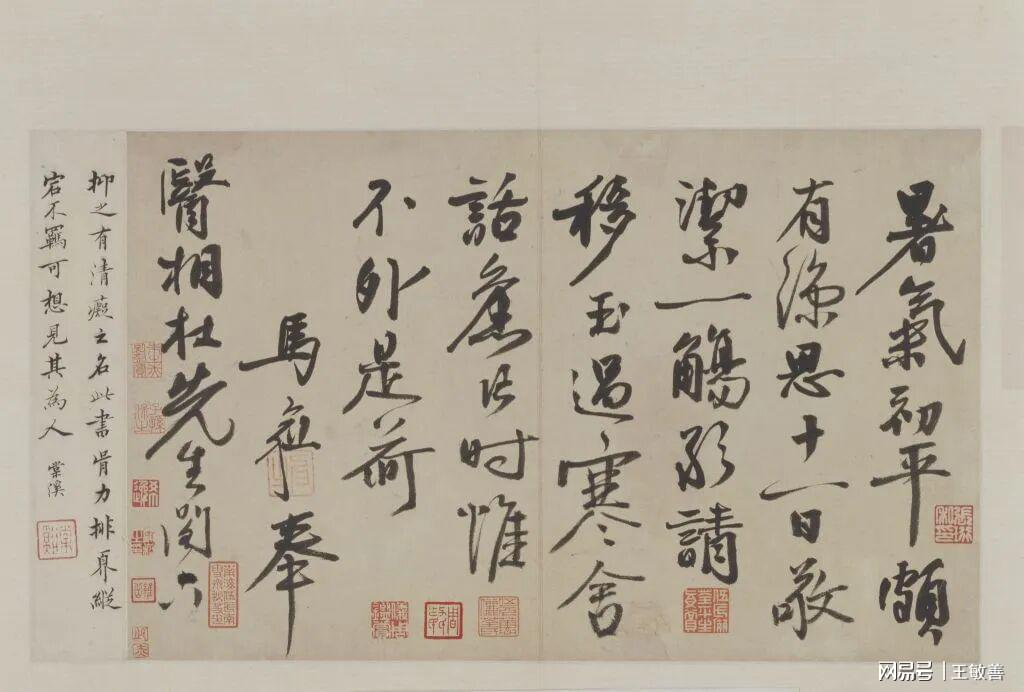 暑氣初平頗
有涼思十一日敬
潔一觴請
移玉過寒舍
話舊片时惟
不外是荷
馬愈奉
醫相杜先生閣下
抑之有清癡之名此書骨力排奡縱
宕不羈可想見其為人 棠溪
网易号 | 王敏善